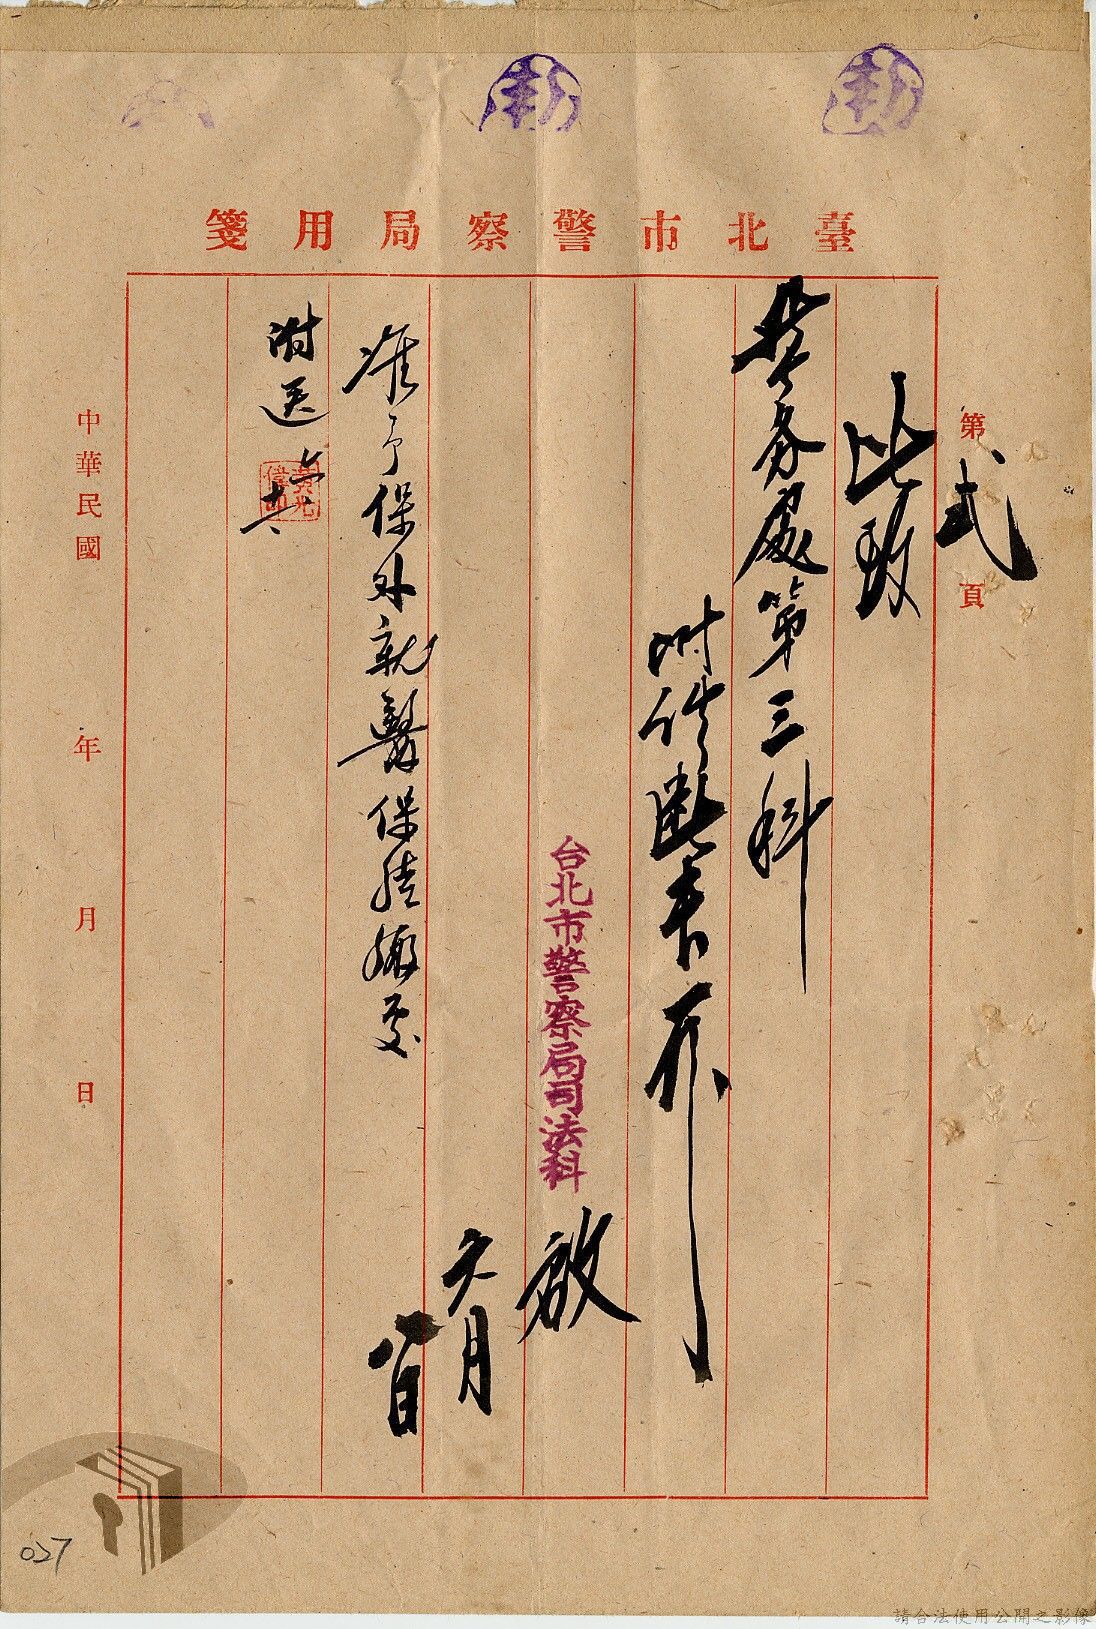 臺北市警察局用箋
第弍頁
此致
警務處第三科
附診斷書乙份
台北市警察局司法科啟
六月
八日
准予保外就醫保結繳妥
附送 六、十六、
中華民國 年 月 日
027
請合法使用公開之影像